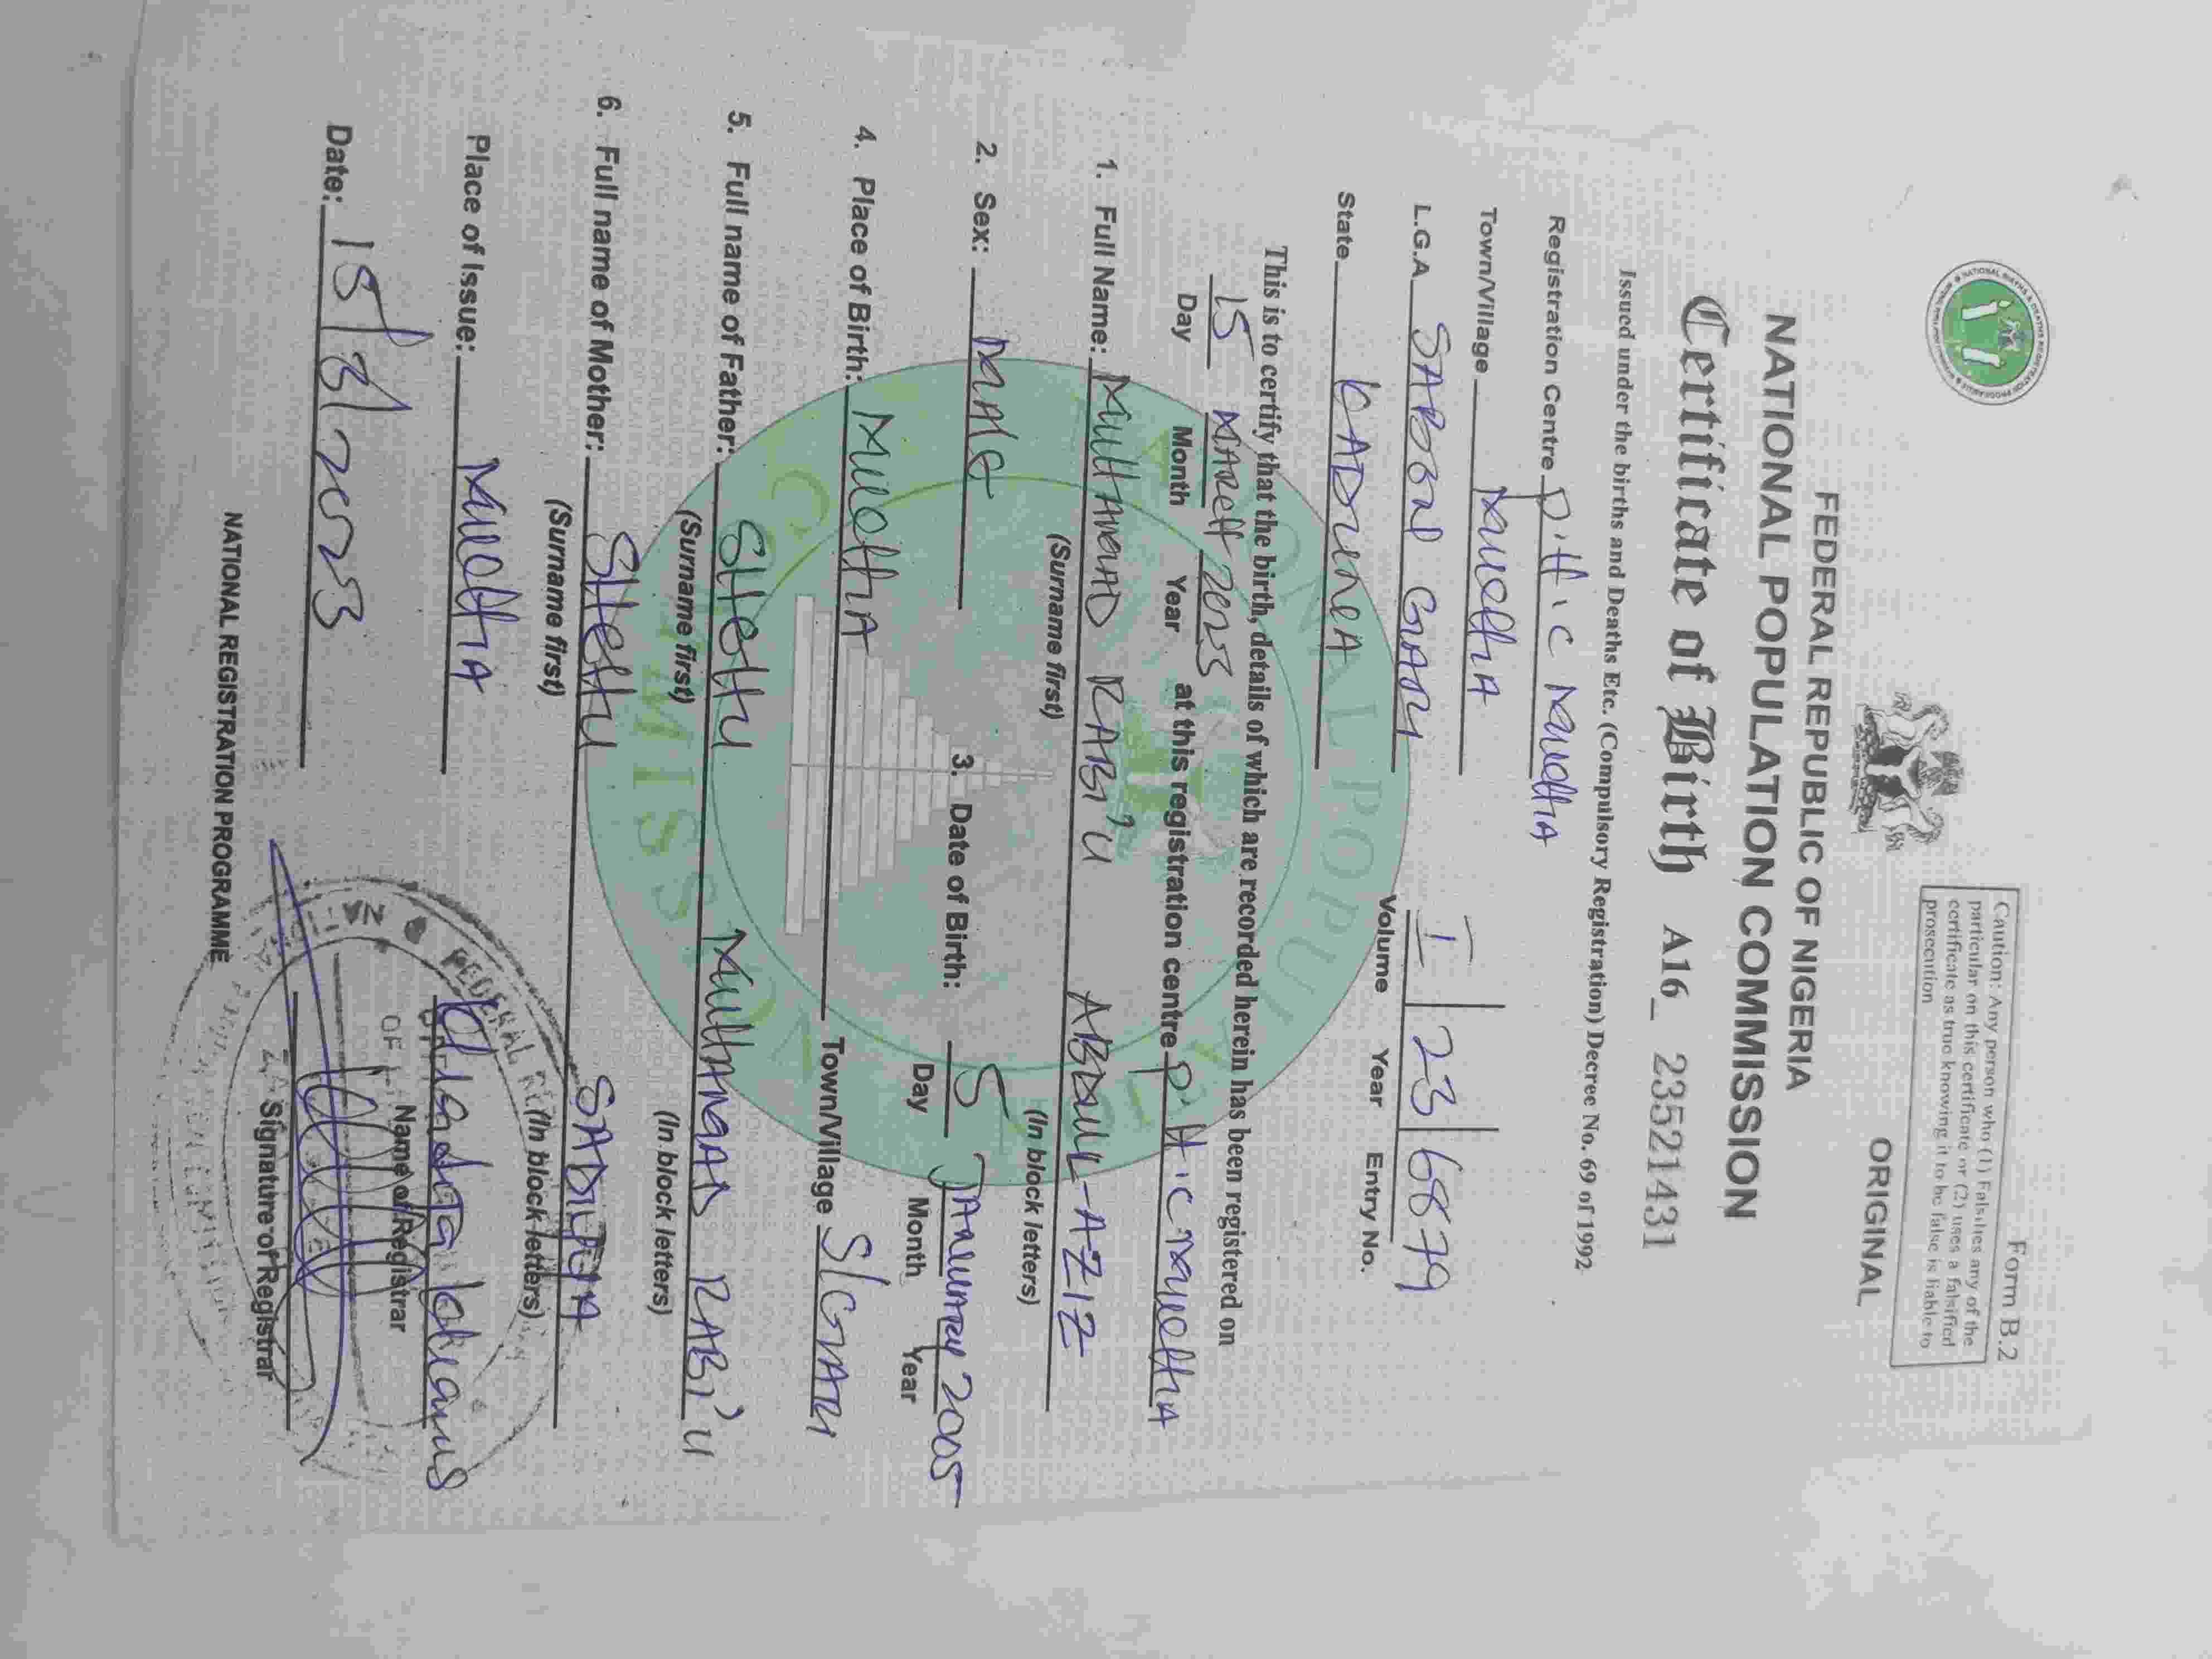 Form B.2
Caution: Any person who (1) Falsifies any of the
particular on this certificate or (2) uses a falsified
certificate as true knowing it to be false is liable to
prosecution
ORIGINAL
FEDERAL REPUBLIC OF NIGERIA
NATIONAL POPULATION COMMISSION
Certificate of Birth A16_ 23521431
Issued under the births and Deaths Etc. (Compulsory Registration) Decree No. 69 of 1992
Registration Centre P.H.C MUCHIA
Town/Village MUCHIA
L.G.A SABON GARI
State KADUNA
I 23 6879
Volume Year Entry No.
This is to certify that the birth, details of which are recorded herein has been registered on
15 MARCH 2023 at this registration centre P.H.C MUCHIA
Day Month Year
1. Full Name: MUHAMMAD RABI'U ABDUL-AZIZ
(Surname first) (In block letters)
2. Sex: MALE 3. Date of Birth: 5 JANUARY 2005
Day Month Year
4. Place of Birth: MUCHIA Town/Village S/GARI
5. Full name of Father: SHEHU MUHAMMAD RABI'U
(Surname first) (In block letters)
6. Full name of Mother: SHEHU SADIYA
(Surname first) (In block letters)
Place of Issue: MUCHIA
Name of Registrar
Date: 15/3/2023
Signature of Registrar
NATIONAL REGISTRATION PROGRAMME